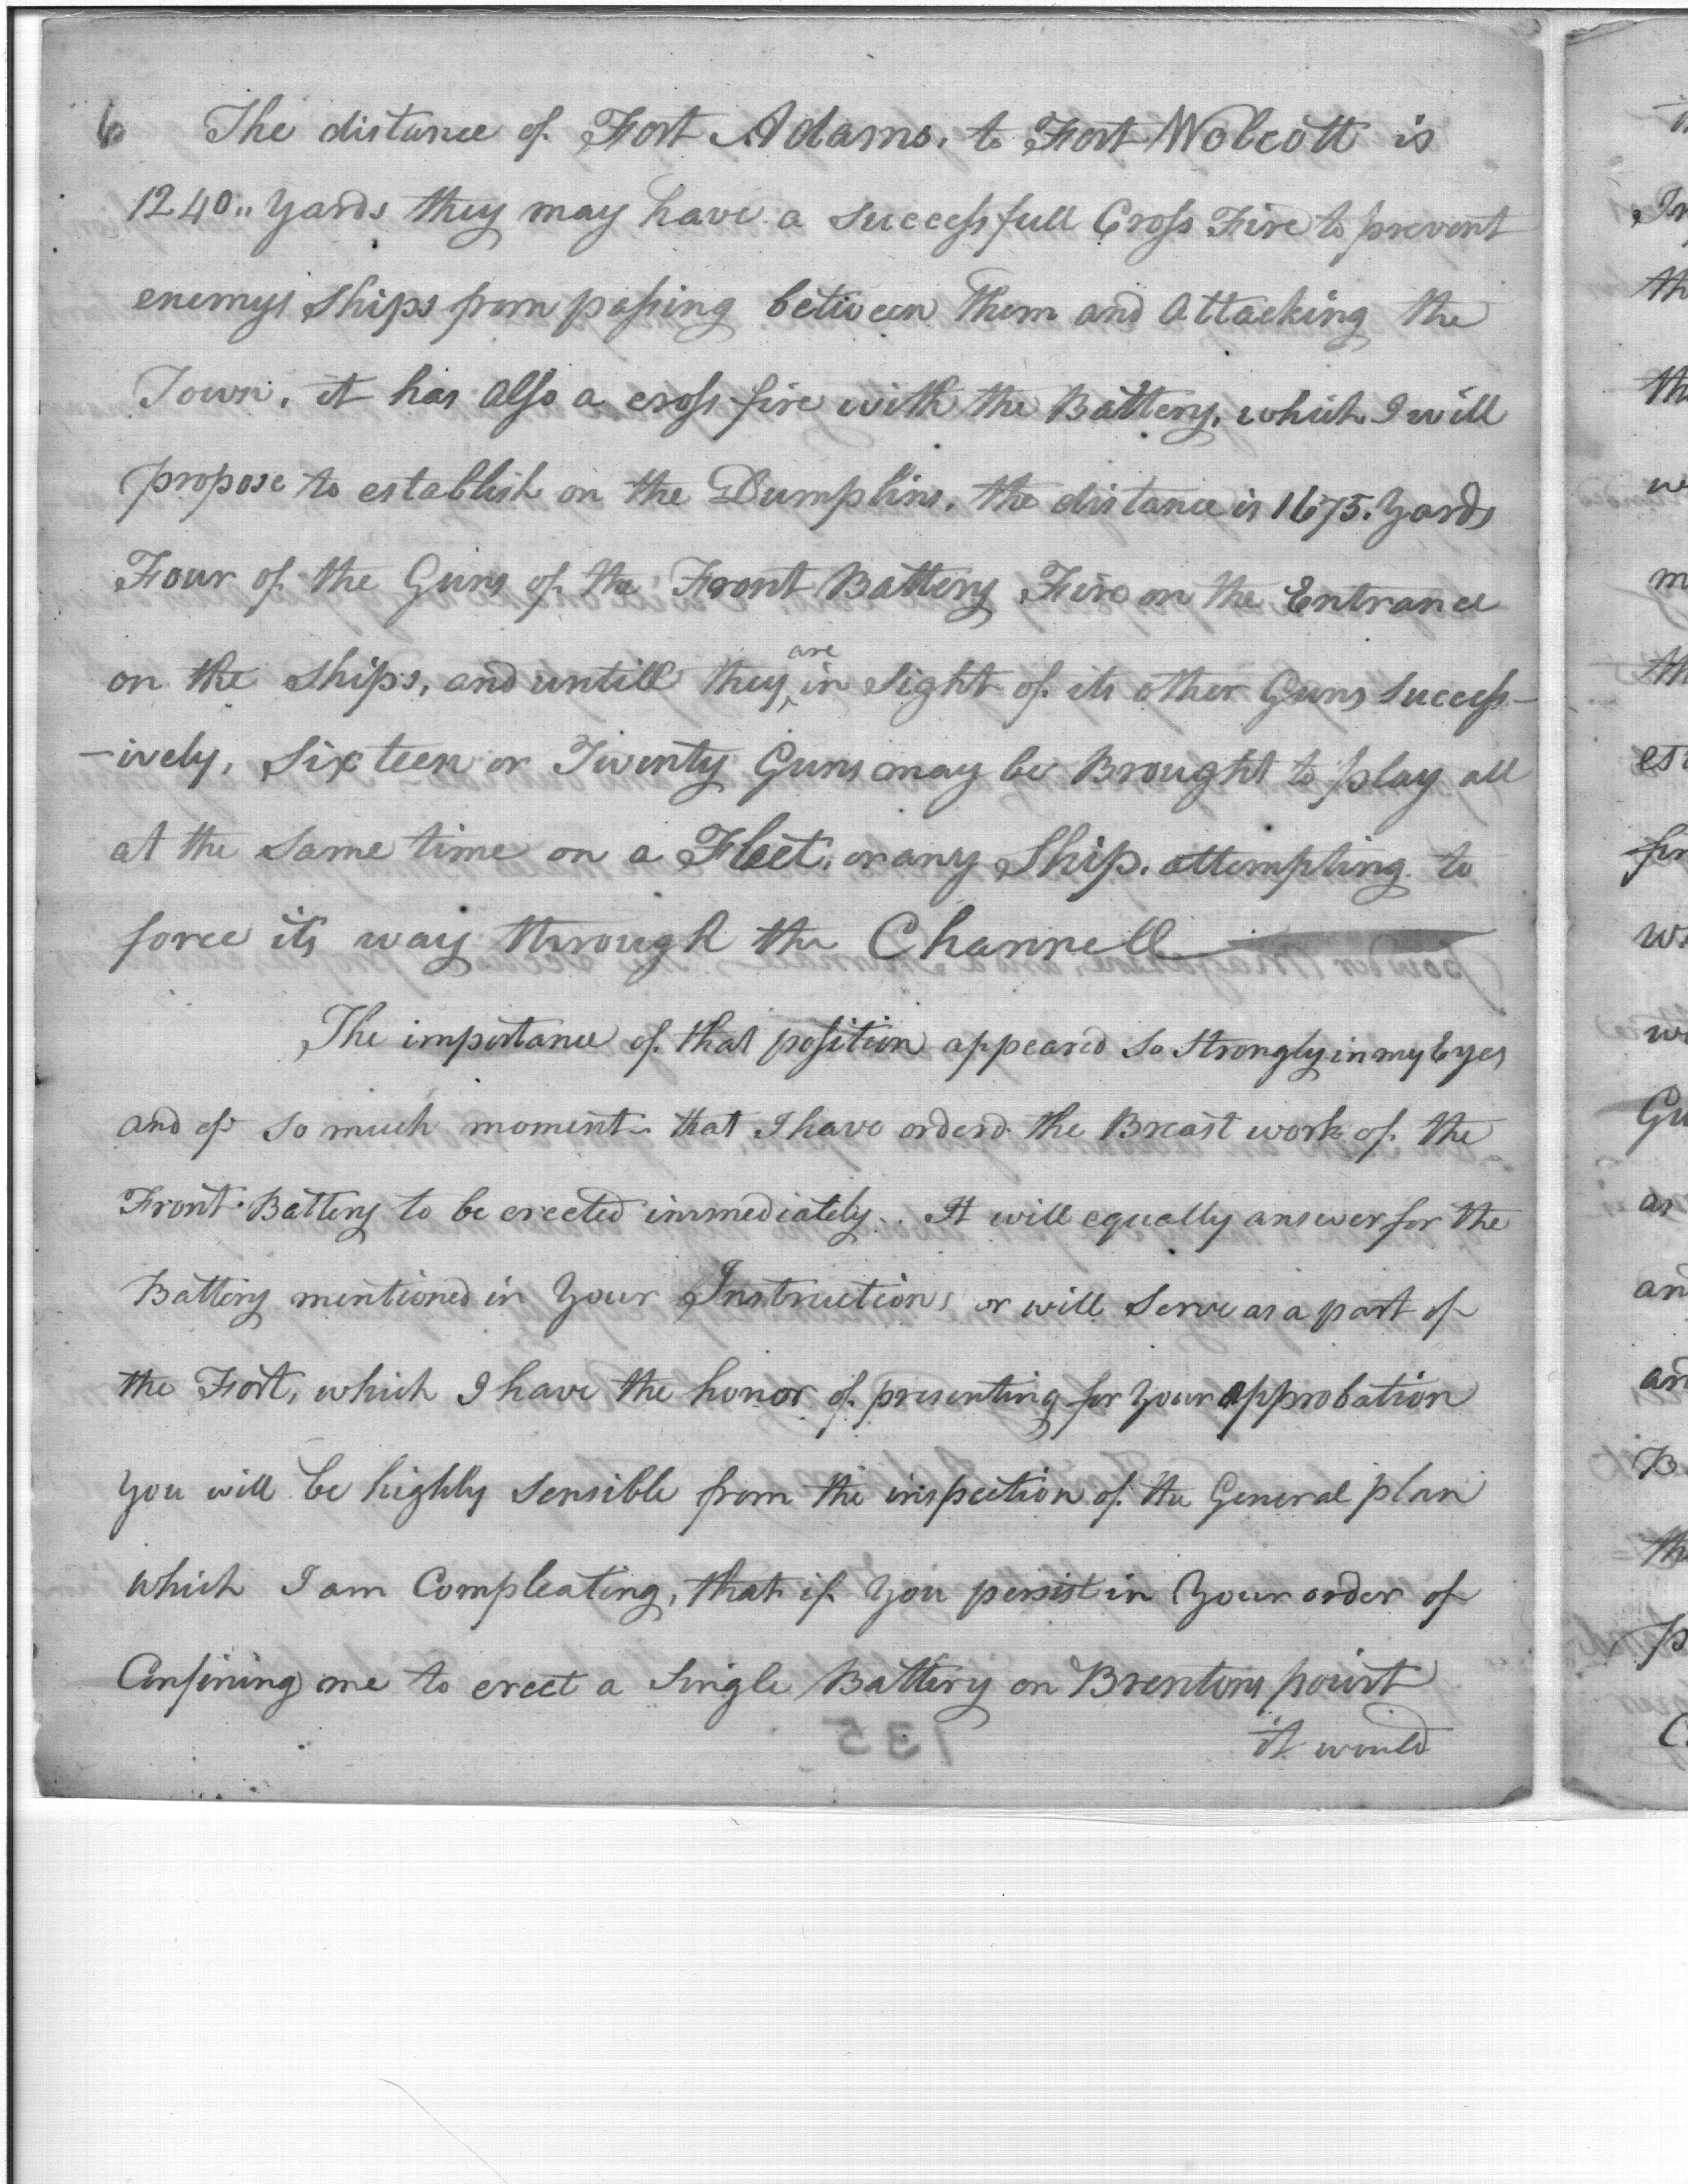 6 The distance of Fort Adams. to Fort Wolcott is
1240.. Yards they may have a successfull Cross Fire to prevent
enemys Ships from passing between Them and Attacking the
Town. it has also a cross fire with the Battery, which I will
propose to establish on the Dumplins. the distance is 1675. Yards
Four of the Guns of the Front Battery Fire on the Entrance
on the Ships, and untill they are in Sight of its other Guns success-
-ively, Sixteen or Twenty Guns may be Brought to play all
at the Same time on a Fleet. or any Ship. attempting to
force its way through the Channell
The importance of that position appeared So Strongly in my Eyes
and of so much moment that I have orderd the Breast work of the
Front Battery to be erected immediately.. It will equally answer for the
Battery mentioned in Your Instructions or will Serve as a part of
the Fort, which I have the honor of presenting for Your approbation
You will be highly Sensible from the inspection of the General plan
which I am Compleating, that if You persist in Your order of
Confining me to erect a Single Battery on Brentons point
it would
735